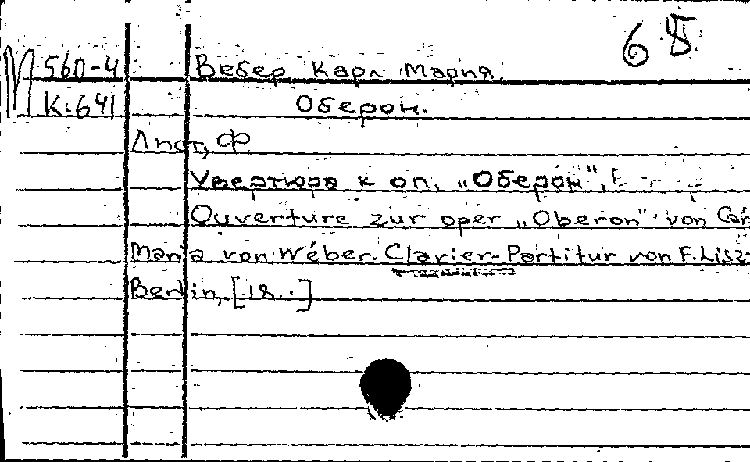 65
М 560-4 Вебер Карл Мария.
К.641 Оберон.
Лист, Ф
Увертюра к оп. „Оберон",
Ouverture zur oper „Oberon" von Car
Maria von Wéber. Clavier-Partitur von F. Lisz
Berlin, [18..]